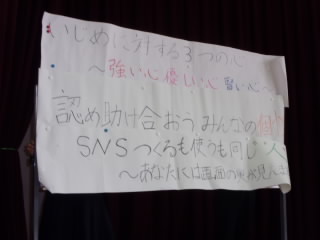 いじめに対する3つの心
～強い心優しい心 賢い心～
認め助け合おう みんなの個
SNSつくるも使うも同じ人
～あなたには画面の